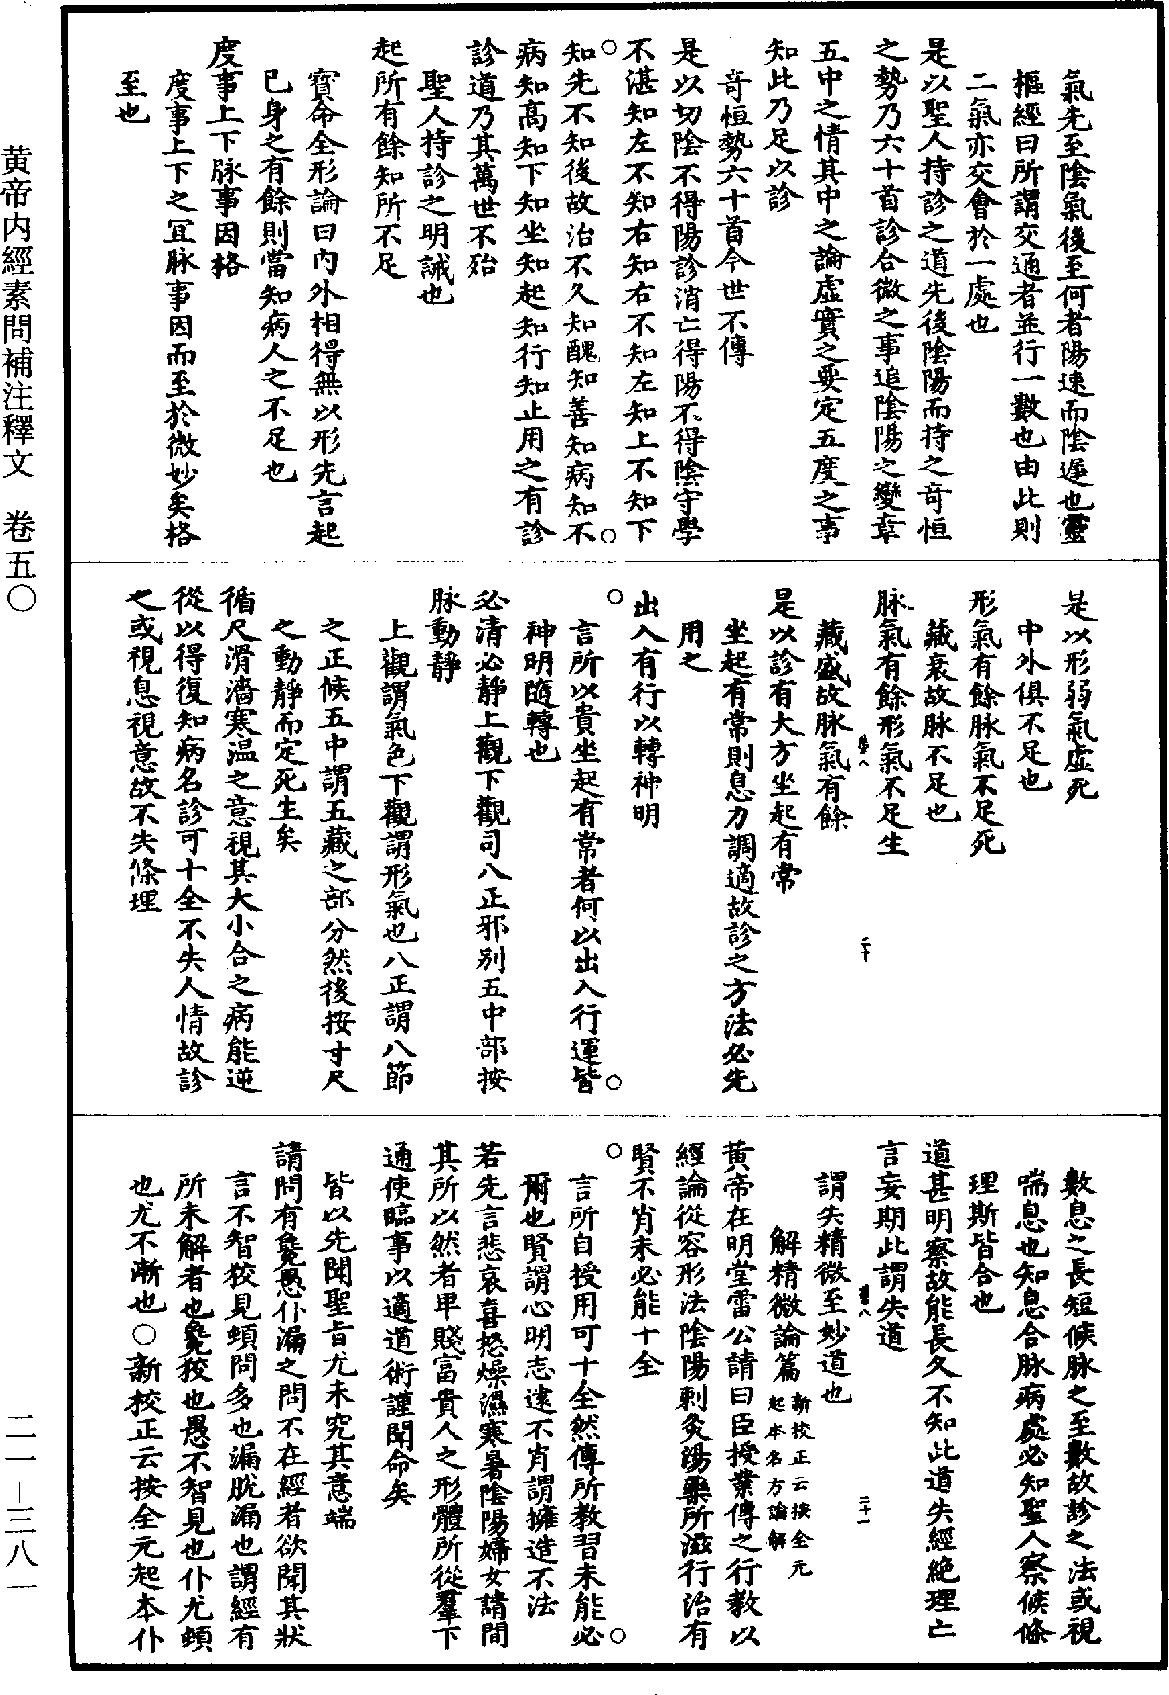 氣先至陰氣後至何者陽速而陰遲也靈
樞經曰所謂交通者並行一數也由此則
二氣亦交會於一處也
是以聖人持診之道先後陰陽而持之奇恒
之勢乃六十首診合微之事追陰陽之變章
五中之情其中之論虛實之要定五度之事
知此乃足以診
奇恒勢六十首今世不傳
是以切陰不得陽診消亡得陽不得陰守學
不湛知左不知右知右不知左知上不知下
知先不知後故治不久知醜知善知病知不
病知高知下知坐知起知行知止用之有診
診道乃其萬世不殆
聖人持診之明誡也
起所有餘知所不足
寶命全形論曰內外相得無以形先言起
已身之有餘則當知病人之不足也
度事上下脉事因格
度事上下之宜脉事因而至於微妙矣格
至也
是以形弱氣虛死
中外俱不足也
形氣有餘脉氣不足死
藏衰故脉不足也
脉氣有餘形氣不足生
藏盛故脉氣有餘
是以診有大方坐起有常
坐起有常則息力調適故診之方法必先
用之
出入有行以轉神明
言所以貴坐起有常者何以出入行運皆
神明隨轉也
必清必靜上觀下觀司八正邪別五中部按
脉動靜
上觀謂氣色下觀謂形氣也八正謂八節
之正候五中謂五藏之部分然後按寸尺
之動靜而定死生矣
循尺滑濇寒温之意視其大小合之病能逆
從以得復知病名診可十全不失人情故診
之或視息視意故不失條理
二十
數息之長短候脉之至數故診之法或視
喘息也知息合脉病處必知聖人察候條
理斯皆合也
道甚明察故能長久不知此道失經絕理亡
言妄期此謂失道
謂失精微至妙道也
解精微論篇
新校正云按全元
起本名方論解
黃帝在明堂雷公請曰臣授業傳之行教以
經論從容形法陰陽刺灸湯藥所滋行治有
賢不肖未必能十全
言所自授用可十全然傳所教習未能必
爾也賢謂心明志遠不肖謂擁造不法
若先言悲哀喜怒燥濕寒暑陰陽婦女請問
其所以然者卑賤富貴人之形體所從羣下
通使臨事以適道術謹聞命矣
皆以先聞聖旨尤未究其意端
請問有毚愚仆漏之問不在經者欲聞其狀
言不智狡見頓問多也漏脫漏也謂經有
所未解者也毚狡也愚不智見也仆尤頓
也尤不漸也○新校正云按全元起本仆
三十一
黄帝内經素問補注釋文　卷五〇
二一—三八一